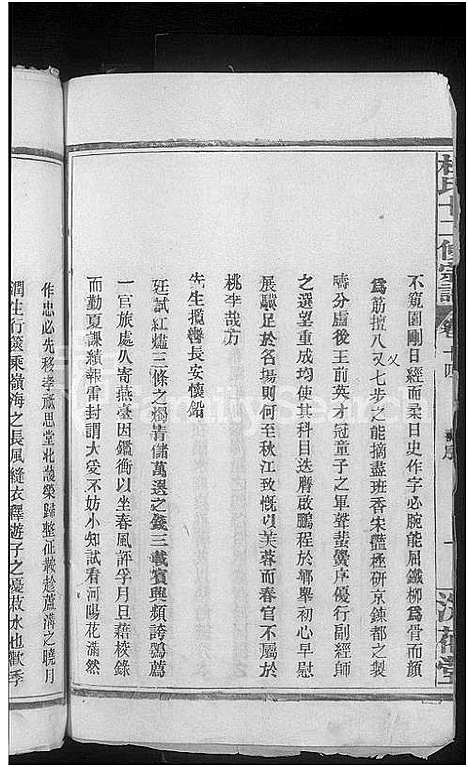 杜氏十二修宗譜
卷十四
不窺園剛日經而柔日史作字必腕能屈鐵柳爲骨而顏
爲筋擅八叉七步之能摘盡班香宋艷極研京鍊都之製
疇分盧後王前英才冠童子之軍聲蜚黌序優行副經師
之選望重成均使其科目迭膺啟鵬程於鄉舉初心早慰
展驥足於名場則何至秋江致慨以芙蓉而春官不屬於
桃李哉方
先生攬轡長安懷鉛
廷試紅爐三條之燭靑儲萬選之錢三載賓興頻誇鶚薦
一官旅處久寄燕臺因鑑衡以坐春風評孚月旦藉稜錄
而勤夏課績報雷封謂大受不妨小知試看河陽花滿然
作忠必先移孝肅思堂北護榮歸整征轍趁蘆溝之曉月
潤生行篋乘嶺海之長風縫衣釋遊子之憂菽水也歡季
FamilySearch